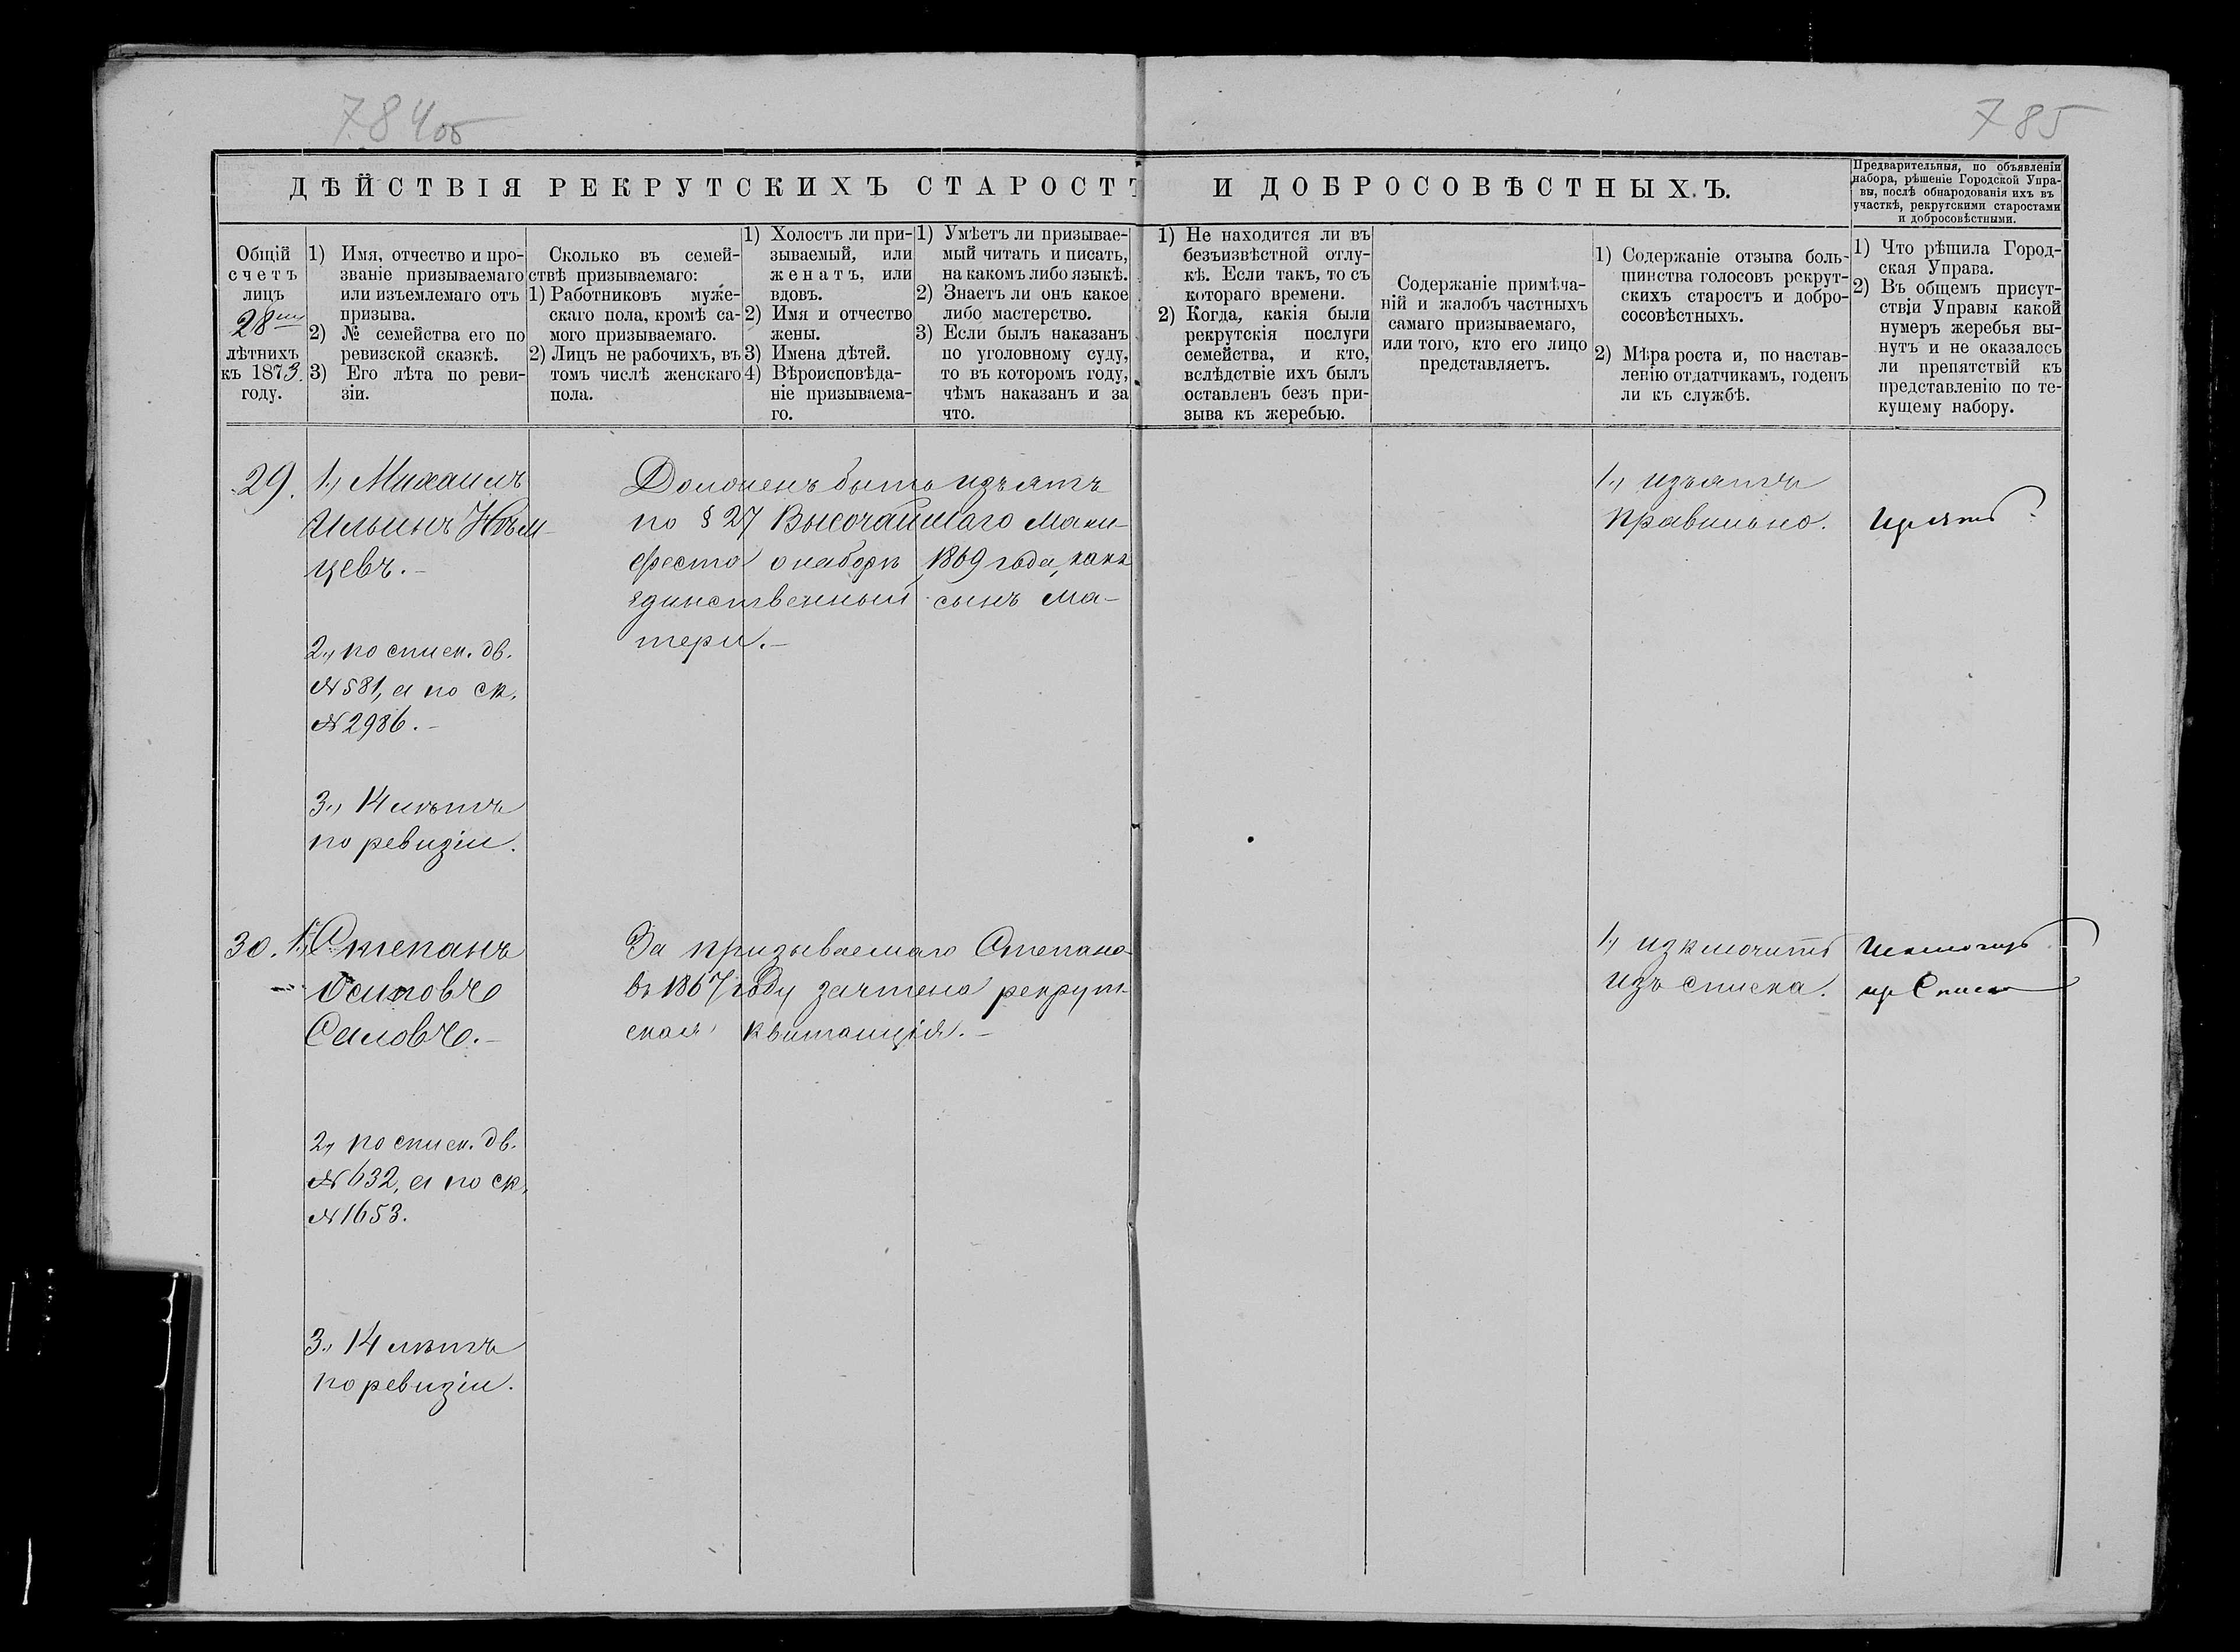 784об
785
ДѢЙСТВІЯ РЕКРУТСКИХЪ СТАРОСТЪ И ДОБРОСОВѢСТНЫХЪ.
Предварительныя, по объявленіи
набора, рѣшеніе Городской Упра-
вы, послѣ обнародованія ихъ въ
участкѣ, рекрутскими старостами
и добросовѣстными.
Общій
счетъ
лицъ
28ми
лѣтнихъ
къ 1873.
году.
1) Имя, отчество и про-
званіе призываемаго
или изъемлемаго отъ
призыва.
2) № семейства его по
ревизской сказкѣ.
3) Его лѣта по реви-
зіи.
Сколько въ семей-
ствѣ призываемаго:
1) Работниковъ муже-
скаго пола, кромѣ са-
мого призываемаго.
2) Лицъ не рабочихъ, въ
томъ числѣ женскаго
пола.
1) Холостъ ли при-
зываемый, или
женатъ, или
вдовъ.
2) Имя и отчество
жены.
3) Имена дѣтей.
4) Вѣроисповѣда-
ніе призываема-
го.
1) Умѣетъ ли призывае-
мый читать и писать,
на какомъ либо языкѣ.
2) Знаетъ ли онъ какое
либо мастерство.
3) Если былъ наказанъ
по уголовному суду,
то въ которомъ году,
чѣмъ наказанъ и за
что.
1) Не находится ли въ
безъизвѣстной отлу-
кѣ. Если такъ, то съ
котораго времени.
2) Когда, какія были
рекрутскія послуги
семейства, и кто,
вслѣдствіе ихъ былъ
оставленъ безъ при-
зыва къ жеребью.
Содержаніе примѣча-
ній и жалобъ частныхъ
самаго призываемаго,
или того, кто его лицо
представляетъ.
1) Содержаніе отзыва боль-
шинства голосовъ рекрут-
скихъ старостъ и добро-
сосовѣстныхъ.
2) Мѣра роста и, по настав-
ленію отдатчикамъ, годенъ
ли къ службѣ.
1) Что рѣшила Город-
ская Управа.
2) Въ общемъ присут-
ствіи Управы какой
нумеръ жеребья вы-
нутъ и не оказалось
ли препятствій къ
представленію по те-
кущему набору.
29.
1., Михаилъ
Ильинъ Нѣм-
цевъ.-
2., по списк. дв.
№ 581, а по ск.
№ 2986.-
3., 14 лѣтъ
по ревизіи.
Долженъ быть изъятъ
по § 27 Высочайшаго Мани-
феста о наборѣ 1869 года, какъ
единственный сынъ ма-
тери.-
1., изъятъ
правильно.
Изъять
30.
1., Степанъ
Осиповъ
Саловъ.-
2., по списк. дв.
№ 632, а по ск.
№ 1653.
3., 14 лѣтъ
по ревизіи.
За призываемаго Степана
въ 1867 году зачтена рекрут-
ская квитанція.-
1., изключить
изъ списка.
Исключить
из Списка